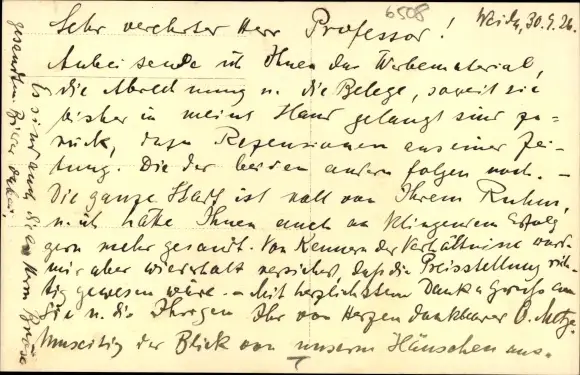 6508
Weida, 30.9.26.
Sehr verehrter Herr Professor!
Anbei sende ich Ihnen das Werbematerial,
die Abrechnung u. die Belege, soweit sie
bisher in meine Hand gelangt sind zu-
rück, dazu Rezensionen aus einer Zei-
tung. Die der beiden andern folgen noch. –
Die ganze Stadt ist voll von Ihrem Ruhm,
u. ich hätte Ihnen auch an klingendem Erfolg
gern mehr gesandt. Von Kennern der Verhältnisse ward
mir aber wiederholt versichert, daß die Preisstellung rich-
tig gewesen wäre. – Mit herzlichstem Dank u. Gruß an
Sie u. die Ihrigen Ihr von Herzen dankbarer O. Metzge.
Umseitig der Blick von unserm Häuschen aus. –
Es sind auch die an Herrn
gesandten Bilder dabei.